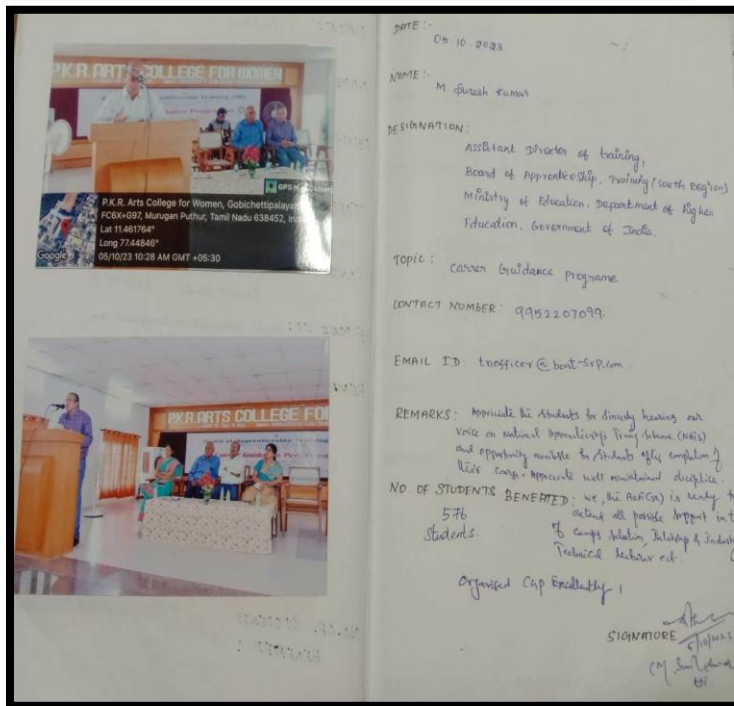 P.K.R. ARTS COLLEGE FOR WOMEN
GPS Map Camera
P.K.R. Arts College for Women, Gobichettipalayam,
FC6X+G97, Murugan Puthur, Tamil Nadu 638452, India
Lat 11.461764°
Long 77.44846°
05/10/23 10:28 AM GMT +05:30
Google
P.K.R. ARTS COLLEGE FO
Career Guidance
DATE :-
05 10 2023
NAME :-
M Suresh Kumar
DESIGNATION :
Assistant Director of training,
Board of Apprenticeship, Training (South Region)
Ministry of Education, Department of Higher
Education, Government of India.
Topic :
Career Guidance Programe
CONTACT NUMBER : 9952207099.
EMAIL ID : tnofficer@boat-srp.com.
REMARKS : Appriciate the students for sincerely hearing our
voice on National Apprenticeship Training Scheme (NATS)
and opportunity available to students after completion of
their course. Appreciate well maintained discipline.
NO OF STUDENTS BENEFITED : we, the BOAT(SR) is ready to
576
extend all possible support
Students.
of campus Selection, Internship & Industry
Technical lecturer ect.
Organised CGP Excellently !
SIGNATURE